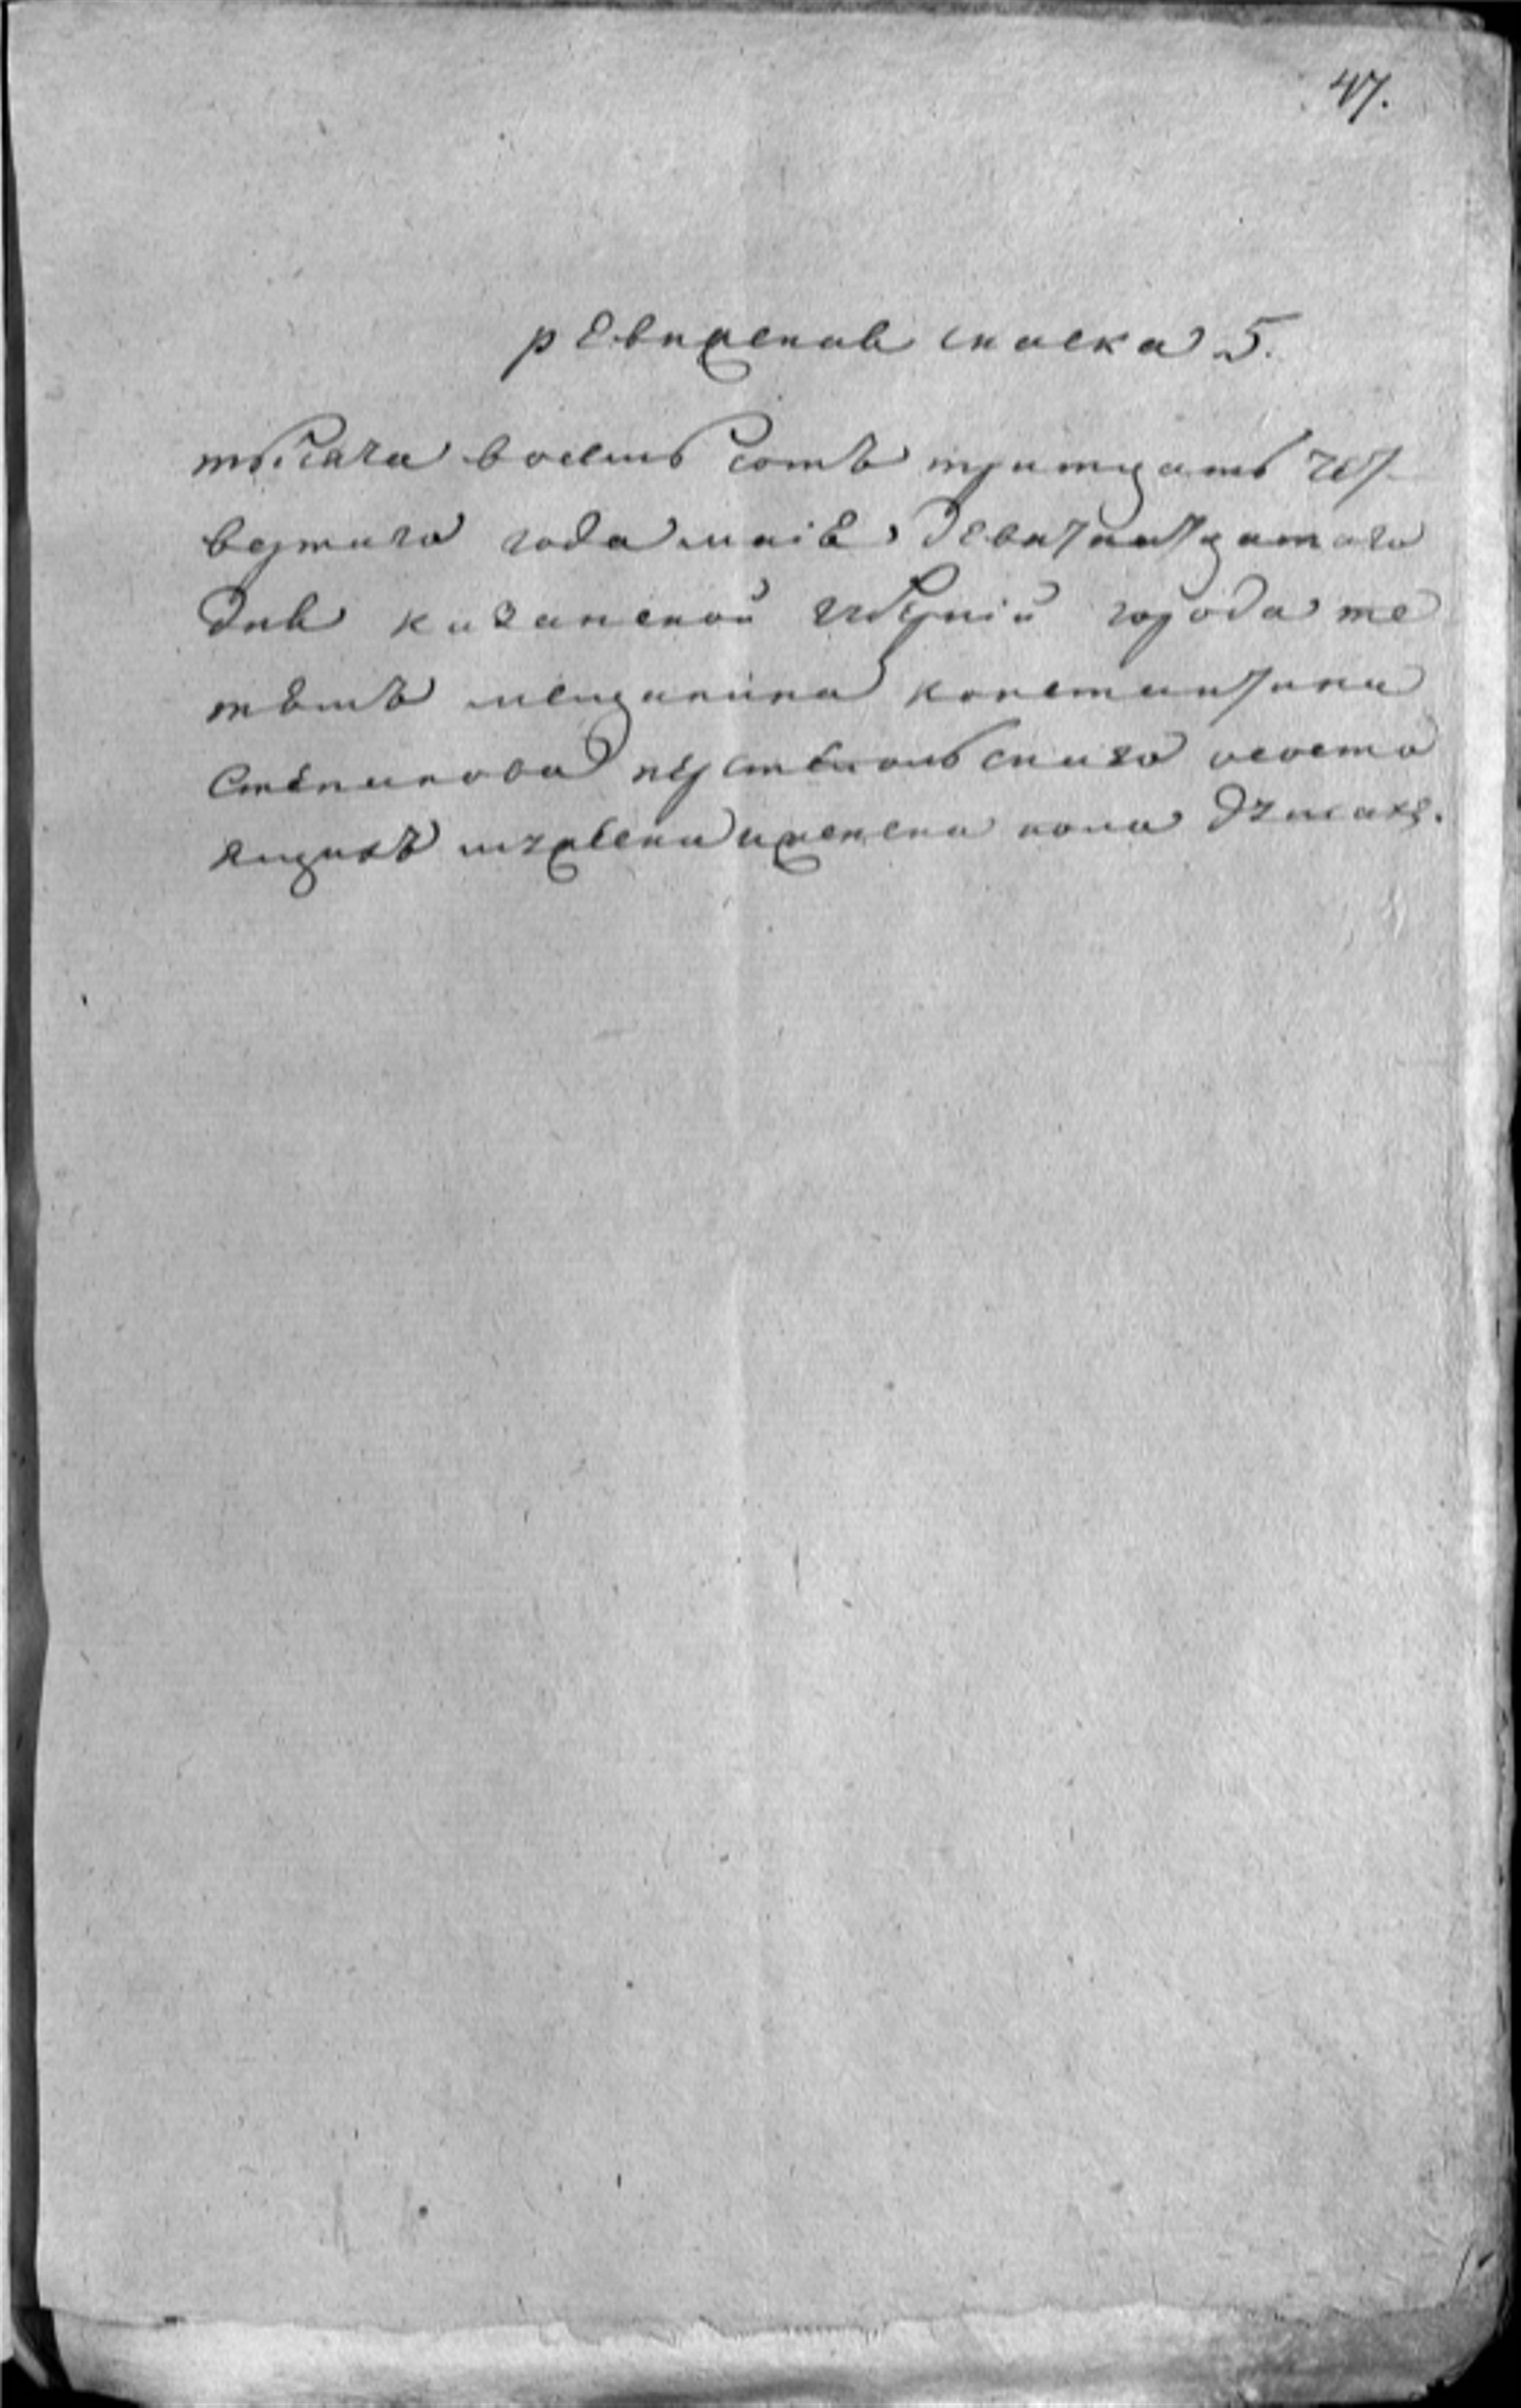 47.
ревиская скаска 5.
тысяча восемь сотъ тритцать чет
вертаго года маіѣ девятнатцатаго
дня казанской губерніи города те
тюшъ мещанина константина
Степанова о состо
ящихъ мужеска и женска пола душахъ.